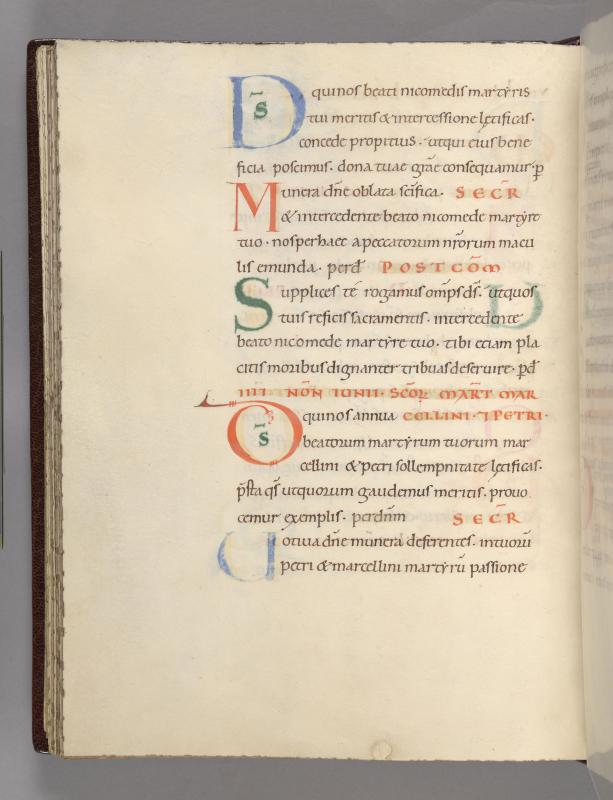 D̄s quinos beati nicomedis martẏris
tui meritis & intercessione lętificas·
concede propitius· utqui eius bene
ficia poscimus· dona tuae grãe consequamur· p̱
Munera dñe oblata scĩfica· SECR̄
& intercedente beato nicomede martẏre
tuo· nosperhaec apeccatorum nr̃orum macu
lis emunda· perd̃ POSTCOM̄
Supplices te rogamus omp̃s d̃s· utquos
tuis reficis sacramentis· intercedente
beato nicomede martẏre tuo· tibi etiam pla
citis moribus dignanter tribuas deservire· p̱d̃
IIII· NON̄ IUNII· SC̄OR̄ MAR̄T MAR
D̄s quinos annua CELLINI· 7 PETRI·
beatorum martẏrum tuorum mar
cellini & petri sollempnitate lętificas·
p̃sta q̃s utquorum gaudemus meritis· provo
cemur exemplis· perdñm SECR̄
Uotiva dñe munera deferentes· intuorũ
petri & marcellini martẏrũ passione